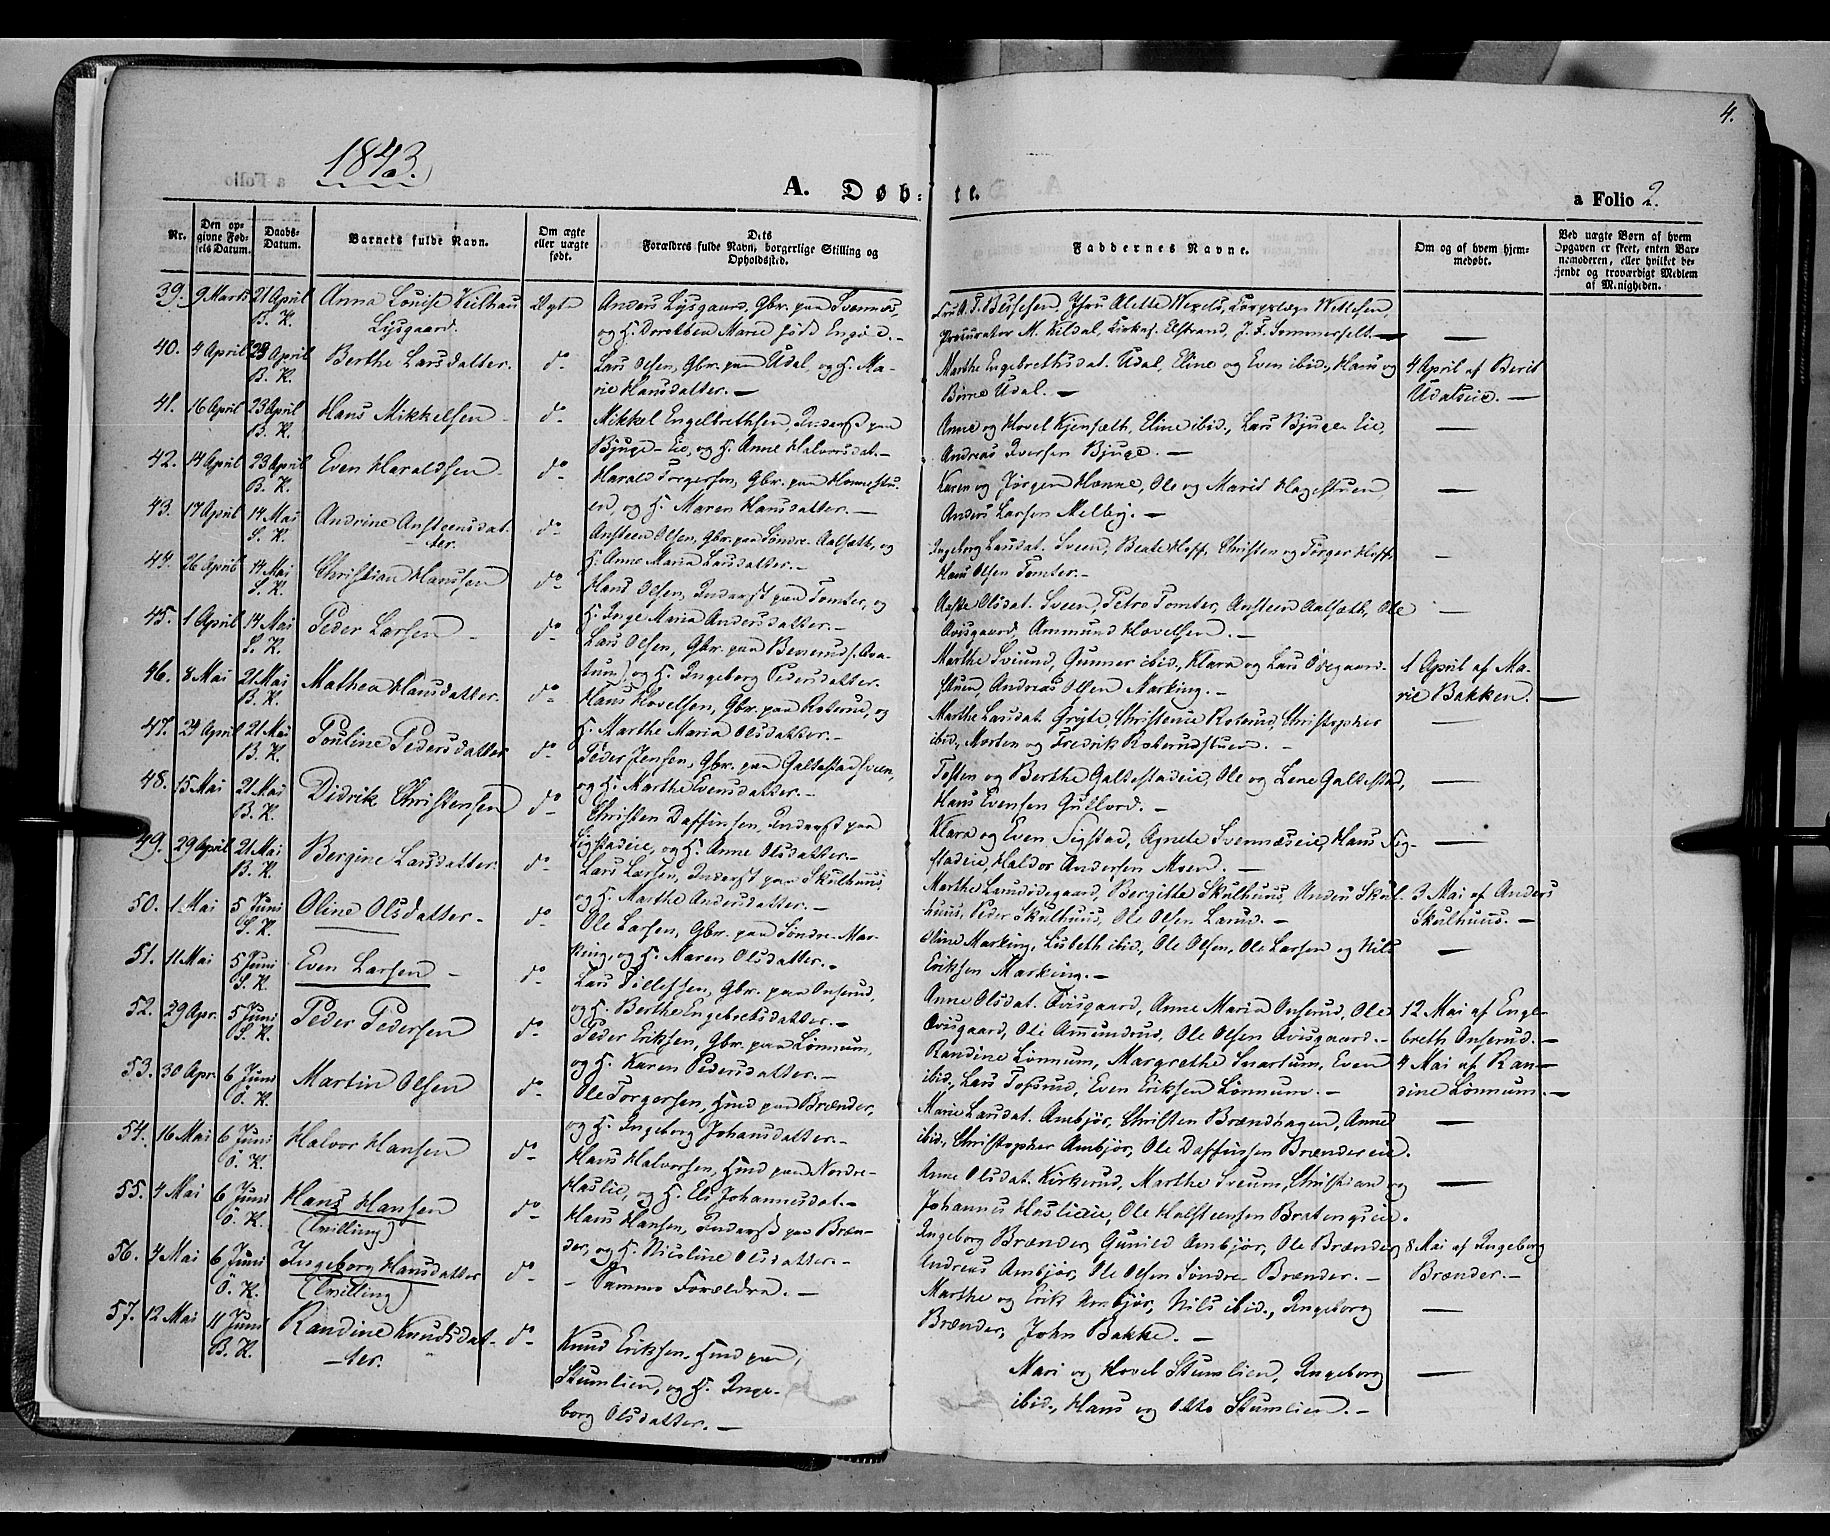 4.
1843.
A. Døb-
te.
a Folio 2.
Nr.
Den opgivne Fødsels Datum.
Daabs-Datum.
Barnets fulde Navn.
Om ægte eller uægte født.
Dets Forældres fulde Navn, borgerlige Stilling og Opholdssted.
Faddernes Navne.
Om og af hvem hjemmedøbt.
Ved uægte Børn af hvem Opgaven er skeet, enten Barnemoderen, eller hvilket bekjendt og troværdigt Medlem af Menigheden.
39. 9 Marts 21 April B. K. Anna Louise Keilhau Lysgaard. Ægte
Anders Lysgaard, Gbr. paa Svennes,
og H. Dorethea Marie født Engøe. -
Procurator M. Kildal, Elstrand, J. F. Sommerfelt. -
40. 4 April 23 April B. K. Berthe Larsdatter. do -
Lars Olsen, Gbr. paa Udal, og H. Ma-
rie Hansdatter. -
Marthe Engebrethsdat. Udal, Eline og Even ibid., Hans og
Børre Udal. -
4 April af Berit
Udalseie. -
41. 16 April 23 April B. K. Hans Mikkelsen do -
Mikkel Engelbrethsen, Inderst paa
Bjuge-Eie, og H. Anne Halvorsdat. -
Anne og Hovel Kjensæth, Eline ibid., Lars Bjuge Eie,
Andreas Iversen Bjuge. -
42. 14 April 23 April B. K. Even Haraldsen do -
Harald Torgersen, Gbr. paa Hønnestu-
en, og H. Maren Hansdatter. -
Karen og Jørgen Hønne, Ole og Marie Hagestuen,
Anders Larsen Melby. -
43. 17 April 14 Mai S. K. Andrine Anstensdat-
ter. do -
Ansteen Olsen, Gbr. paa Søndre Aalsæth, og
H. Anne Maria Larsdatter. -
Ingeborg Larsdat. Sveen, Beate Hoff, Christen og Torger Hoff,
Hans Olsen Tomter. -
44. 26 April 14 Mai S. K. Christian Hansen do -
Hans Olsen, Inderst paa Tomter, og
H. Inge Maria Andersdatter. -
Olsdat. Sveen, Petra Tomter, Ansteen Aalsæth, Ole
Qvisgaard, Ammund Hovelsen. -
45. 1 April 14 Mai S. K. Peder Larsen - do -
Lars Olsen, Gbr. paa
og H. Ingeborg Pedersdatter.
Marthe Sviund, Gunner ibid., Klara og Lars Ødegaard-
stuen, Andreas Olsen Marking. -
1 April af Ma-
rie Bakken. -
46. 8 Mai 21 Mai B. K. Mathea Hansdatter. do -
Hans Hovelsen, Gbr. paa Roterud, og
H. Marthe Maria Olsdatter. -
Marthe Larsdat. Gryte, Christense Roterud, Christopher
ibid., Morten og Fredrik Roterudstuen. -
47. 24 April 21 Mai B. K. Pouline Pedersdatter do -
Peder Jensen, Gbr. paa Galtestadsveen,
og H. Marthe Evensdatter. -
Tosten og Berthe Galtestadeie, Ole og Lene Galtestad,
Hans Evensen Gullord. -
48. 15 Mai 21 Mai B. K. Didrik Christensen do -
Christen Daffinsen, Inderst paa
Sigstadeie, og H. Anne Olsdatter. -
Klara og Even Sigstad, Agnete Svennæseie, Hans Sig-
stadeie, Haldor Andersen Moen. -
49. 29 April 21 Mai B. K. Bergine Larsdatter. do -
Lars Larsen, Inderst paa Skulhuus,
og H. Marthe Andersdatter. -
Marthe Larsødegaard, Bergitte Skulhuus, Anders Skul-
huus, Peder Skulhuus, Ole Olsen Larud. -
3 Mai af Anders
Skulhuus. -
50. 1 Mai 5 Juni S. K. Oline Olsdatter - do -
Ole Larsen, Gbr. paa Søndre-Mar-
king, og H. Maren Olsdatter. -
Oline Marking, Lisbeth ibid., Ole Olsen, Ole Larsen og Nils
Eriksen Marking. -
51. 11 Mai 5 Juni S. K. Even Larsen - do -
Lars Tollefsen, Gbr. paa Onserud,
og H. Berthe Engebretsdatter. -
Anne Olsdat. Qvisgaard, Anne Maria Onserud, Ole
Qvisgaard, Ole Ammundrud, Ole Olsen Qvisgaard. -
12 Mai af Enge-
breth Onserud. -
52. 29 Apr. 5 Juni S. K. Peder Pedersen do -
Peder Eriksen, Gbr. paa Lønnum,
og H. Karen Pedersdatter. -
Randine Lønnum, Margrethe Snartum, Even
ibid., Lars Tofsrud, Even Eriksen Lønnum. -
4 Mai af Ran-
dine Lønnum. -
53. 30 Apr. 6 Juni Ö. K. Martin Olsen do -
Ole Torgersen, Hmd paa Brænder,
og H. Ingeborg Johansdatter. -
Marie Larsdat. Ambjør, Christen Brændhagen, Anne
ibid., Christopher Ambjør, Ole Daffinsen Brændereie.
54. 16 Mai 6 Juni Ö. K. Halvor Hansen do -
Hans Halvorsen, Hmd paa Nordre-
Haslie, og H. Eli Johannesdat. -
Anne Olsdat. Kirkerud, Marthe Sveum, Christian og
Johannes Haslieeie, Ole Halsteensen Bratengseie.
55. 4 Mai 6 Juni Ö. K. Hans Hansen
(Tvilling) do -
Hans Hansen, Inderst paa Bræn-
der, og H. Nicoline Olsdatter. -
Ingeborg Brænder, Gunild Ambjør, Ole Brænder,
Andreas Ambjør, Ole Olsen Søndre-Brænder. -
8 Mai af Ingeborg
Brænder. -
56. 4 Mai 6 Juni Ö. K. Ingeborg Hansdatter
(Tvilling) do -
- Samme Forældre. -
Marthe og Erik Ambjør, Nils ibid., Ingeborg
Brænder, John Bakke. -
57. 12 Mai 11 Juni B. K. Randine Knudsdat-
ter. do -
Knud Eriksen, Hmd paa
Stumlien, og H. Inge-
borg Olsdatter. -
Mari og Hovel Stumlien, Ingeborg
ibid., Hans og Otto Stumlien. -